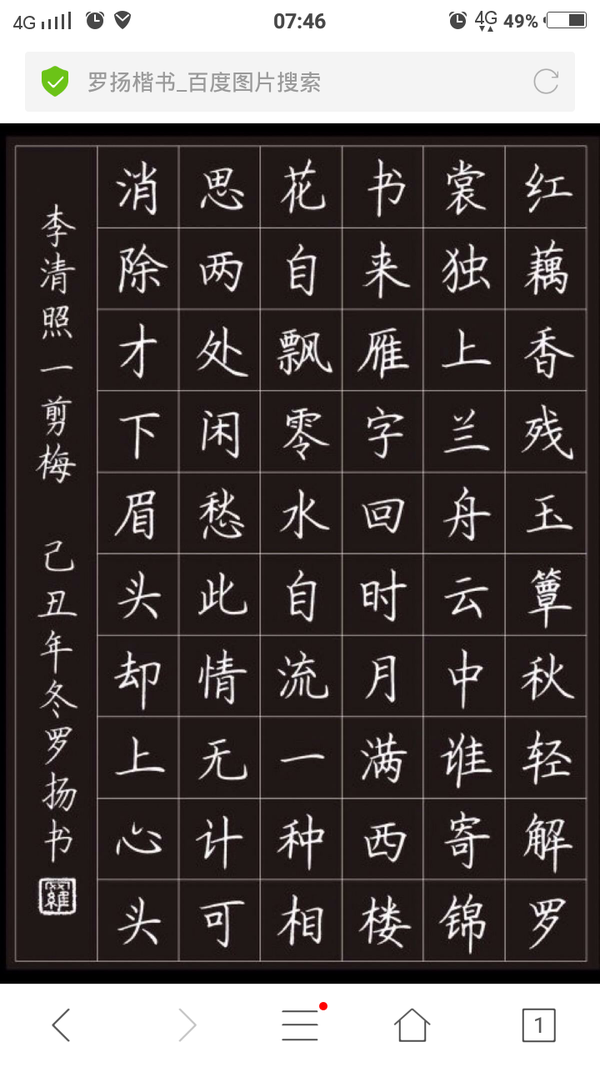 4G 07:46 4G 49%
罗扬楷书_百度图片搜索
红藕香残玉簟秋轻解罗
裳独上兰舟云中谁寄锦
书来雁字回时月满西楼
花自飘零水自流一种相
思两处闲愁此情无计可
消除才下眉头却上心头
李清照一剪梅 己丑年冬罗扬书
羅
1